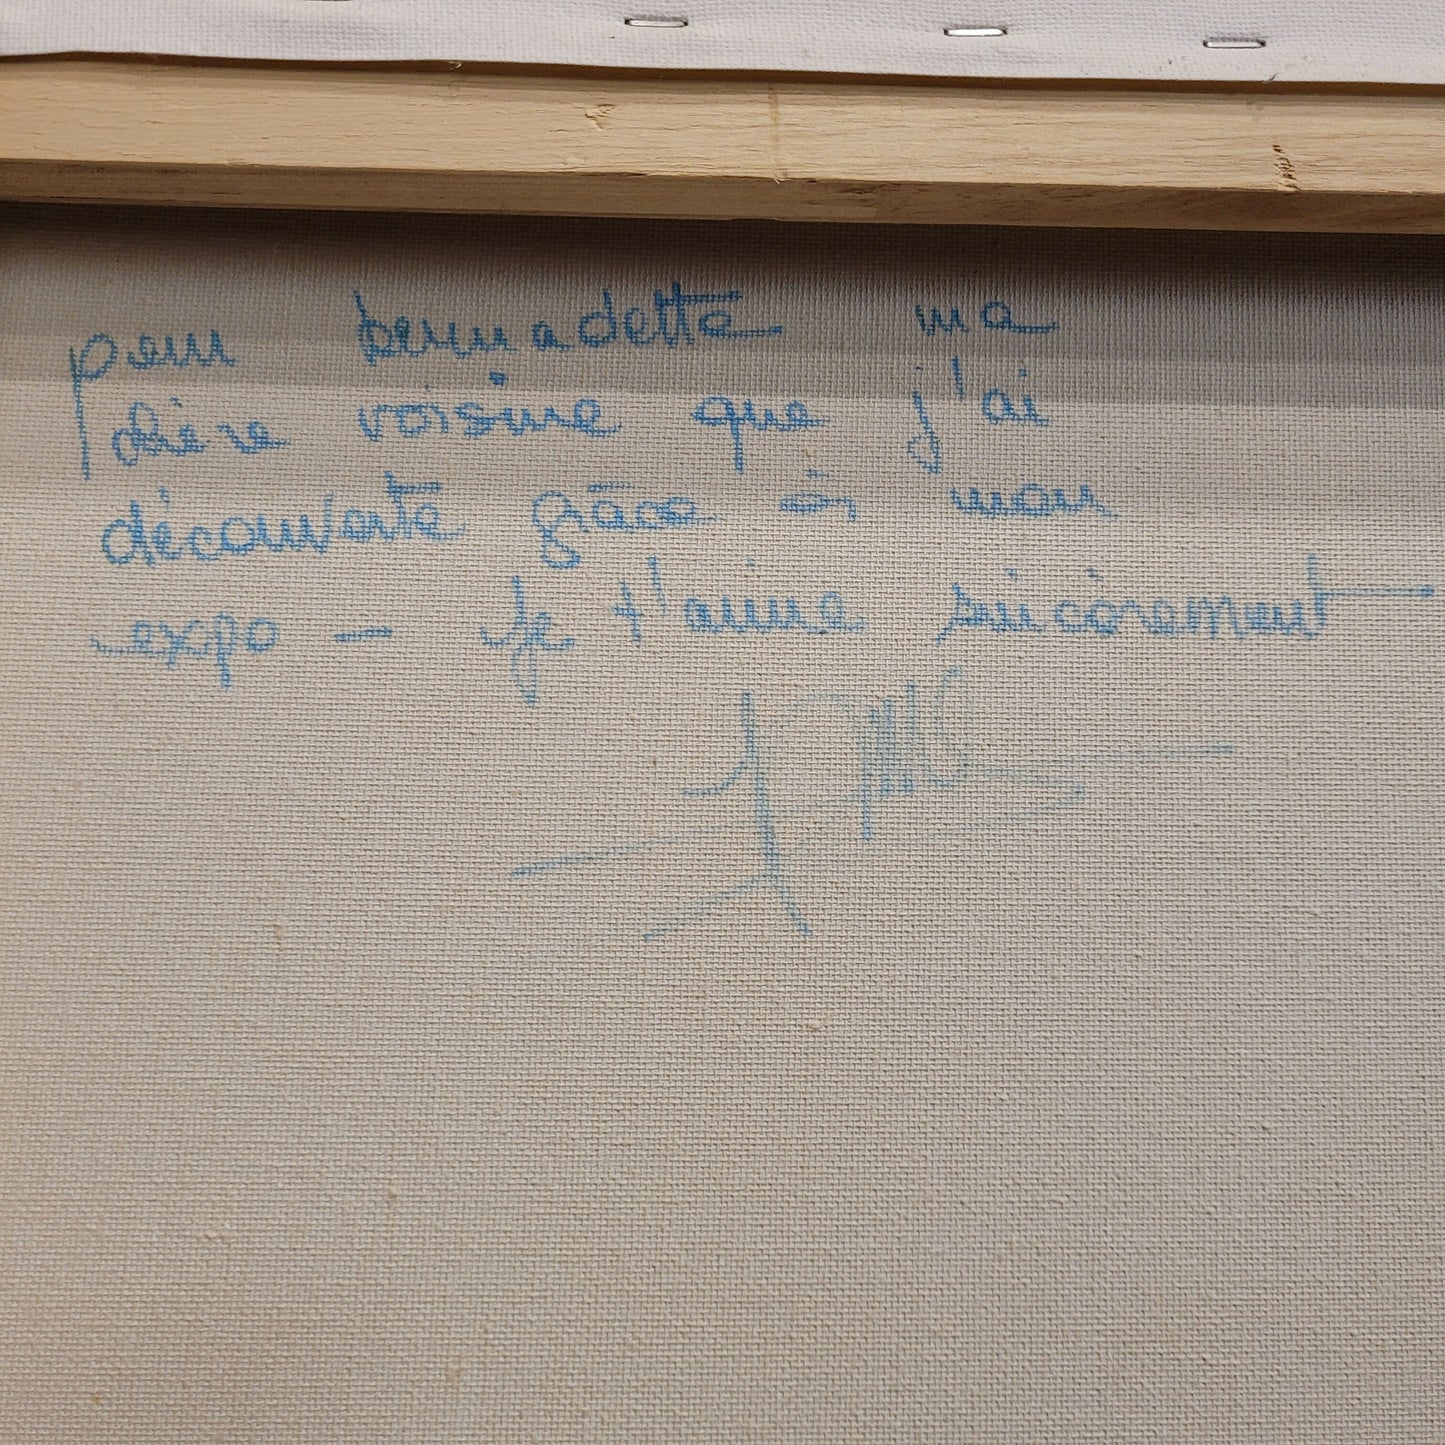 pour bernadette ma
chère voisine que j'ai
découverte grâce à mon
expo - Je t'aime sincèrement